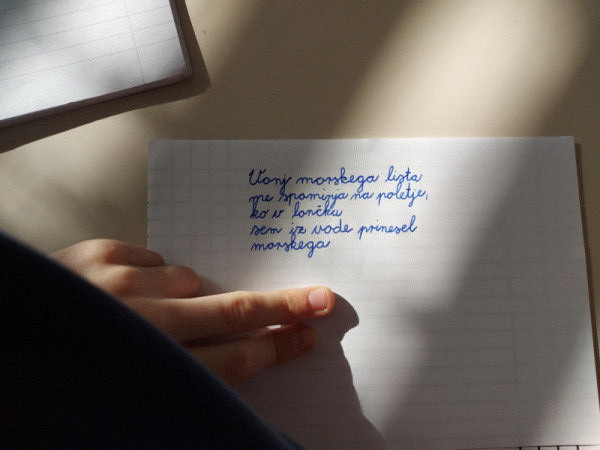 Vonj morskega lista
me spominja na poletje,
ko v lončku
sem iz vode prinesel
morskega